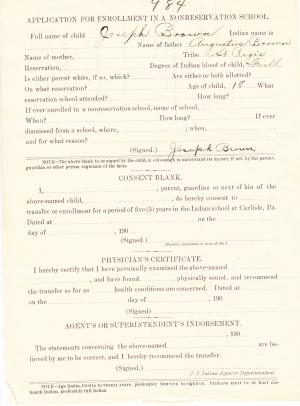 984
APPLICATION FOR ENROLLMENT IN A NONRESERVATION SCHOOL.
Full name of child Joseph Brown Indian name is
Name of father Augustus Brown
Name of mother, Tribe St. Regis
Reservation, Degree of Indian blood of child, Full
Is either parent white, if so, which? Are either or both allotted?
On what reservation? Age of child, 18 What
reservation school attended? How long?
If ever enrolled in a nonreservation school, name of school,
When? How long? If ever
dismissed from a school, where, ; when,
and for what reason?
(Signed.) Joseph Brown
NOTE—The above blank to be signed by the child, if old enough to understand its import; if not, by the parent,
guardian or other person cognizant of the facts.
CONSENT BLANK.
I, , parent, guardian or next of kin of the
above-named child, , do hereby consent to
transfer or enrollment for a period of five (5) years in the Indian school at Carlisle, Pa.
Dated at on the
day of , 190
(Signed.)
(Parent, Guardian or next of kin.)
PHYSICIAN'S CERTIFICATE.
I hereby certify that I have personally examined the above-named
, and have found physically sound, and recommend
the transfer so far as health conditions are concerned. Dated at
on the day of , 190
(Signed.)
AGENT'S OR SUPERINTENDENT'S INDORSEMENT.
, 190
The statements concerning the above-named are be-
lieved by me to be correct, and I hereby recommend the transfer.
(Signed.)
U. S. Indian Agent or Superintendent
NOTE—Age limits, twelve to twenty years, preferably fourteen to eighteen. Students must be at least one-
fourth Indian, preferably full Indian.